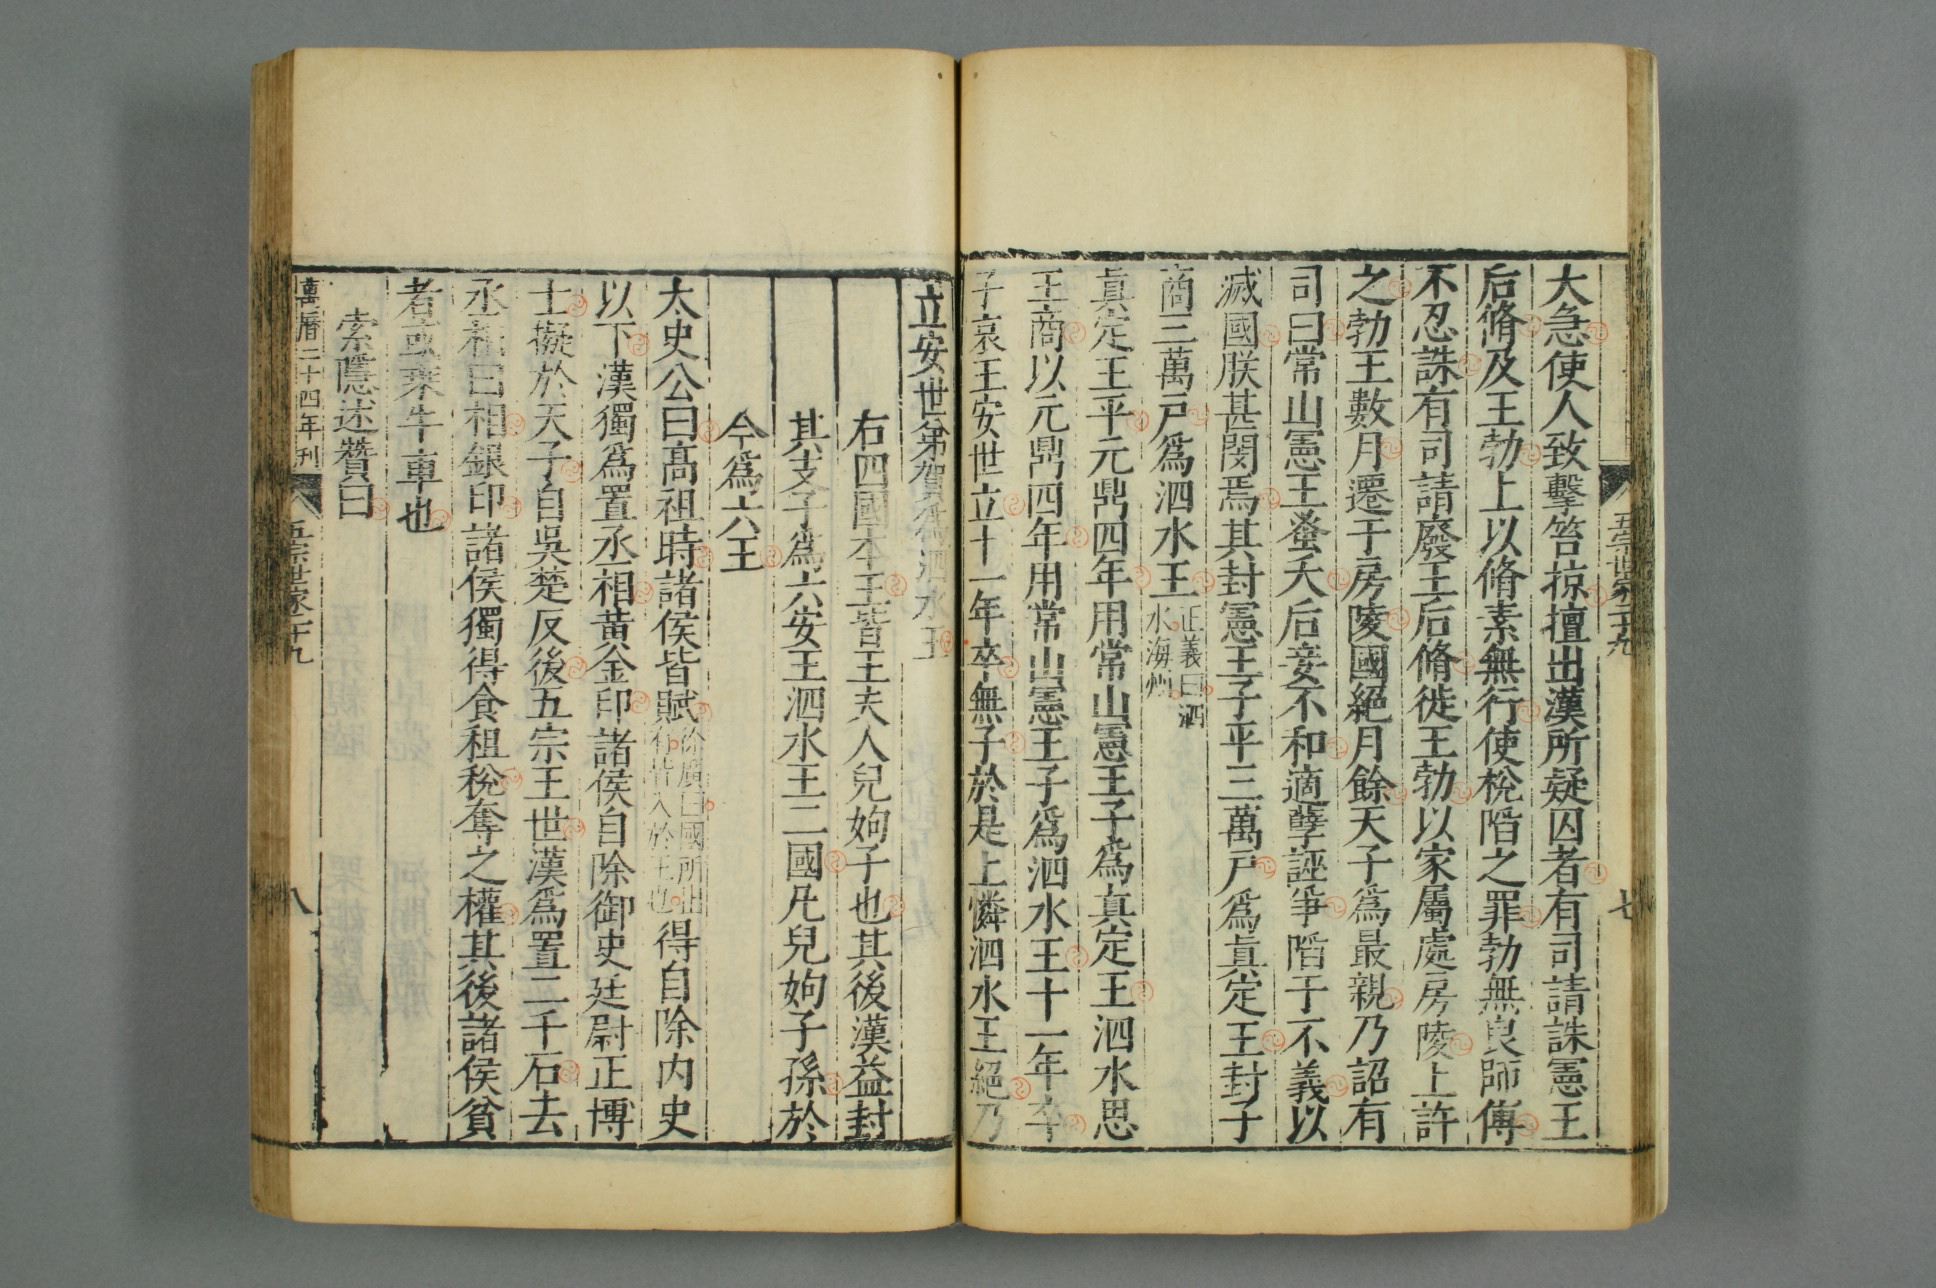 五宗世家二十九
七
大急使人致擊笞掠擅出漢所疑囚者有司請誅憲王
后脩及王勃上以脩素無行使梲陷之罪勃無良師傅
不忍誅有司請廢王后脩徙王勃以家屬處房陵上許
之勃王數月遷于房陵國絕月餘天子爲最親乃詔有
司曰常山憲王蚤夭后妾不和適孽誣爭陷于不義以
滅國朕甚閔焉其封憲王子平三萬戶爲真定王封子
商三萬戶爲泗水王正義曰泗水海州
真定王平元鼎四年用常山憲王子爲真定王泗水思
王商以元鼎四年用常山憲王子爲泗水王十一年卒
子哀王安世立十一年卒無子於是上憐泗水王絕乃
立安世弟賀爲泗水王
右四國本王皆王夫人兒姁子也其後漢益封
其支子爲六安王泗水王二國凡兒姁子孫於
今爲六王
太史公曰高祖時諸侯皆賦徐廣曰國所出有皆入於王也得自除內史
以下漢獨爲置丞相黃金印諸侯自除御史廷尉正博
士擬於天子自吳楚反後五宗王世漢爲置二千石去
丞相曰相銀印諸侯獨得食租稅奪之權其後諸侯貧
者或乘牛車也
索隱述贊曰
萬曆二十四年刊
五宗世家二十九
八